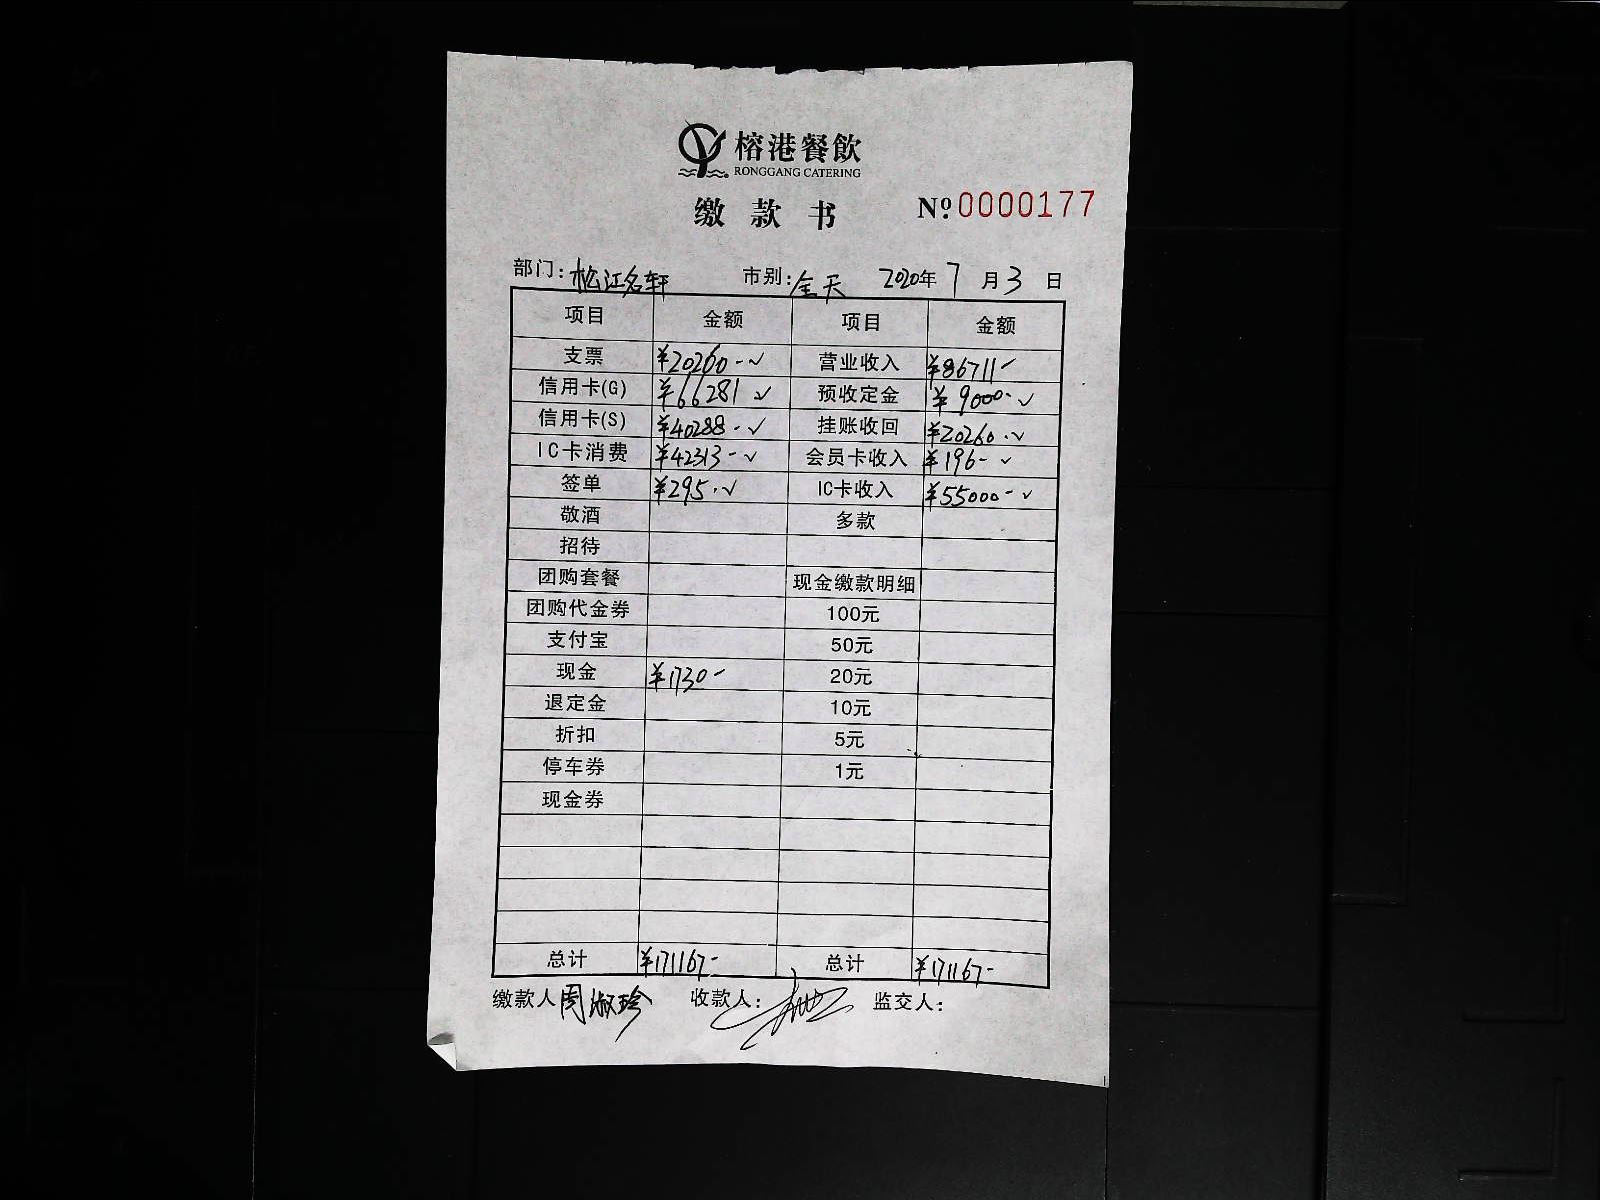 榕港餐飲
RONGGANG CATERING
缴款书 Nº0000177
部门：松江名轩 市别：全天 2020年7月3日
项目 金额 项目 金额
支票 ¥20260-✓ 营业收入 ¥86711-
信用卡(G) ¥66281✓ 预收定金 ¥9000-✓
信用卡(S) ¥40288-✓ 挂账收回 ¥20260.✓
IC卡消费 ¥42313-✓ 会员卡收入 ¥196-✓
签单 ¥295.✓ IC卡收入 ¥55000-✓
敬酒 多款
招待
团购套餐 现金缴款明细
团购代金券 100元
支付宝 50元
现金 ¥1730- 20元
退定金 10元
折扣 5元
停车券 1元
现金券
总计 ¥171167- 总计 ¥171167-
缴款人周淑珍 收款人： 监交人：